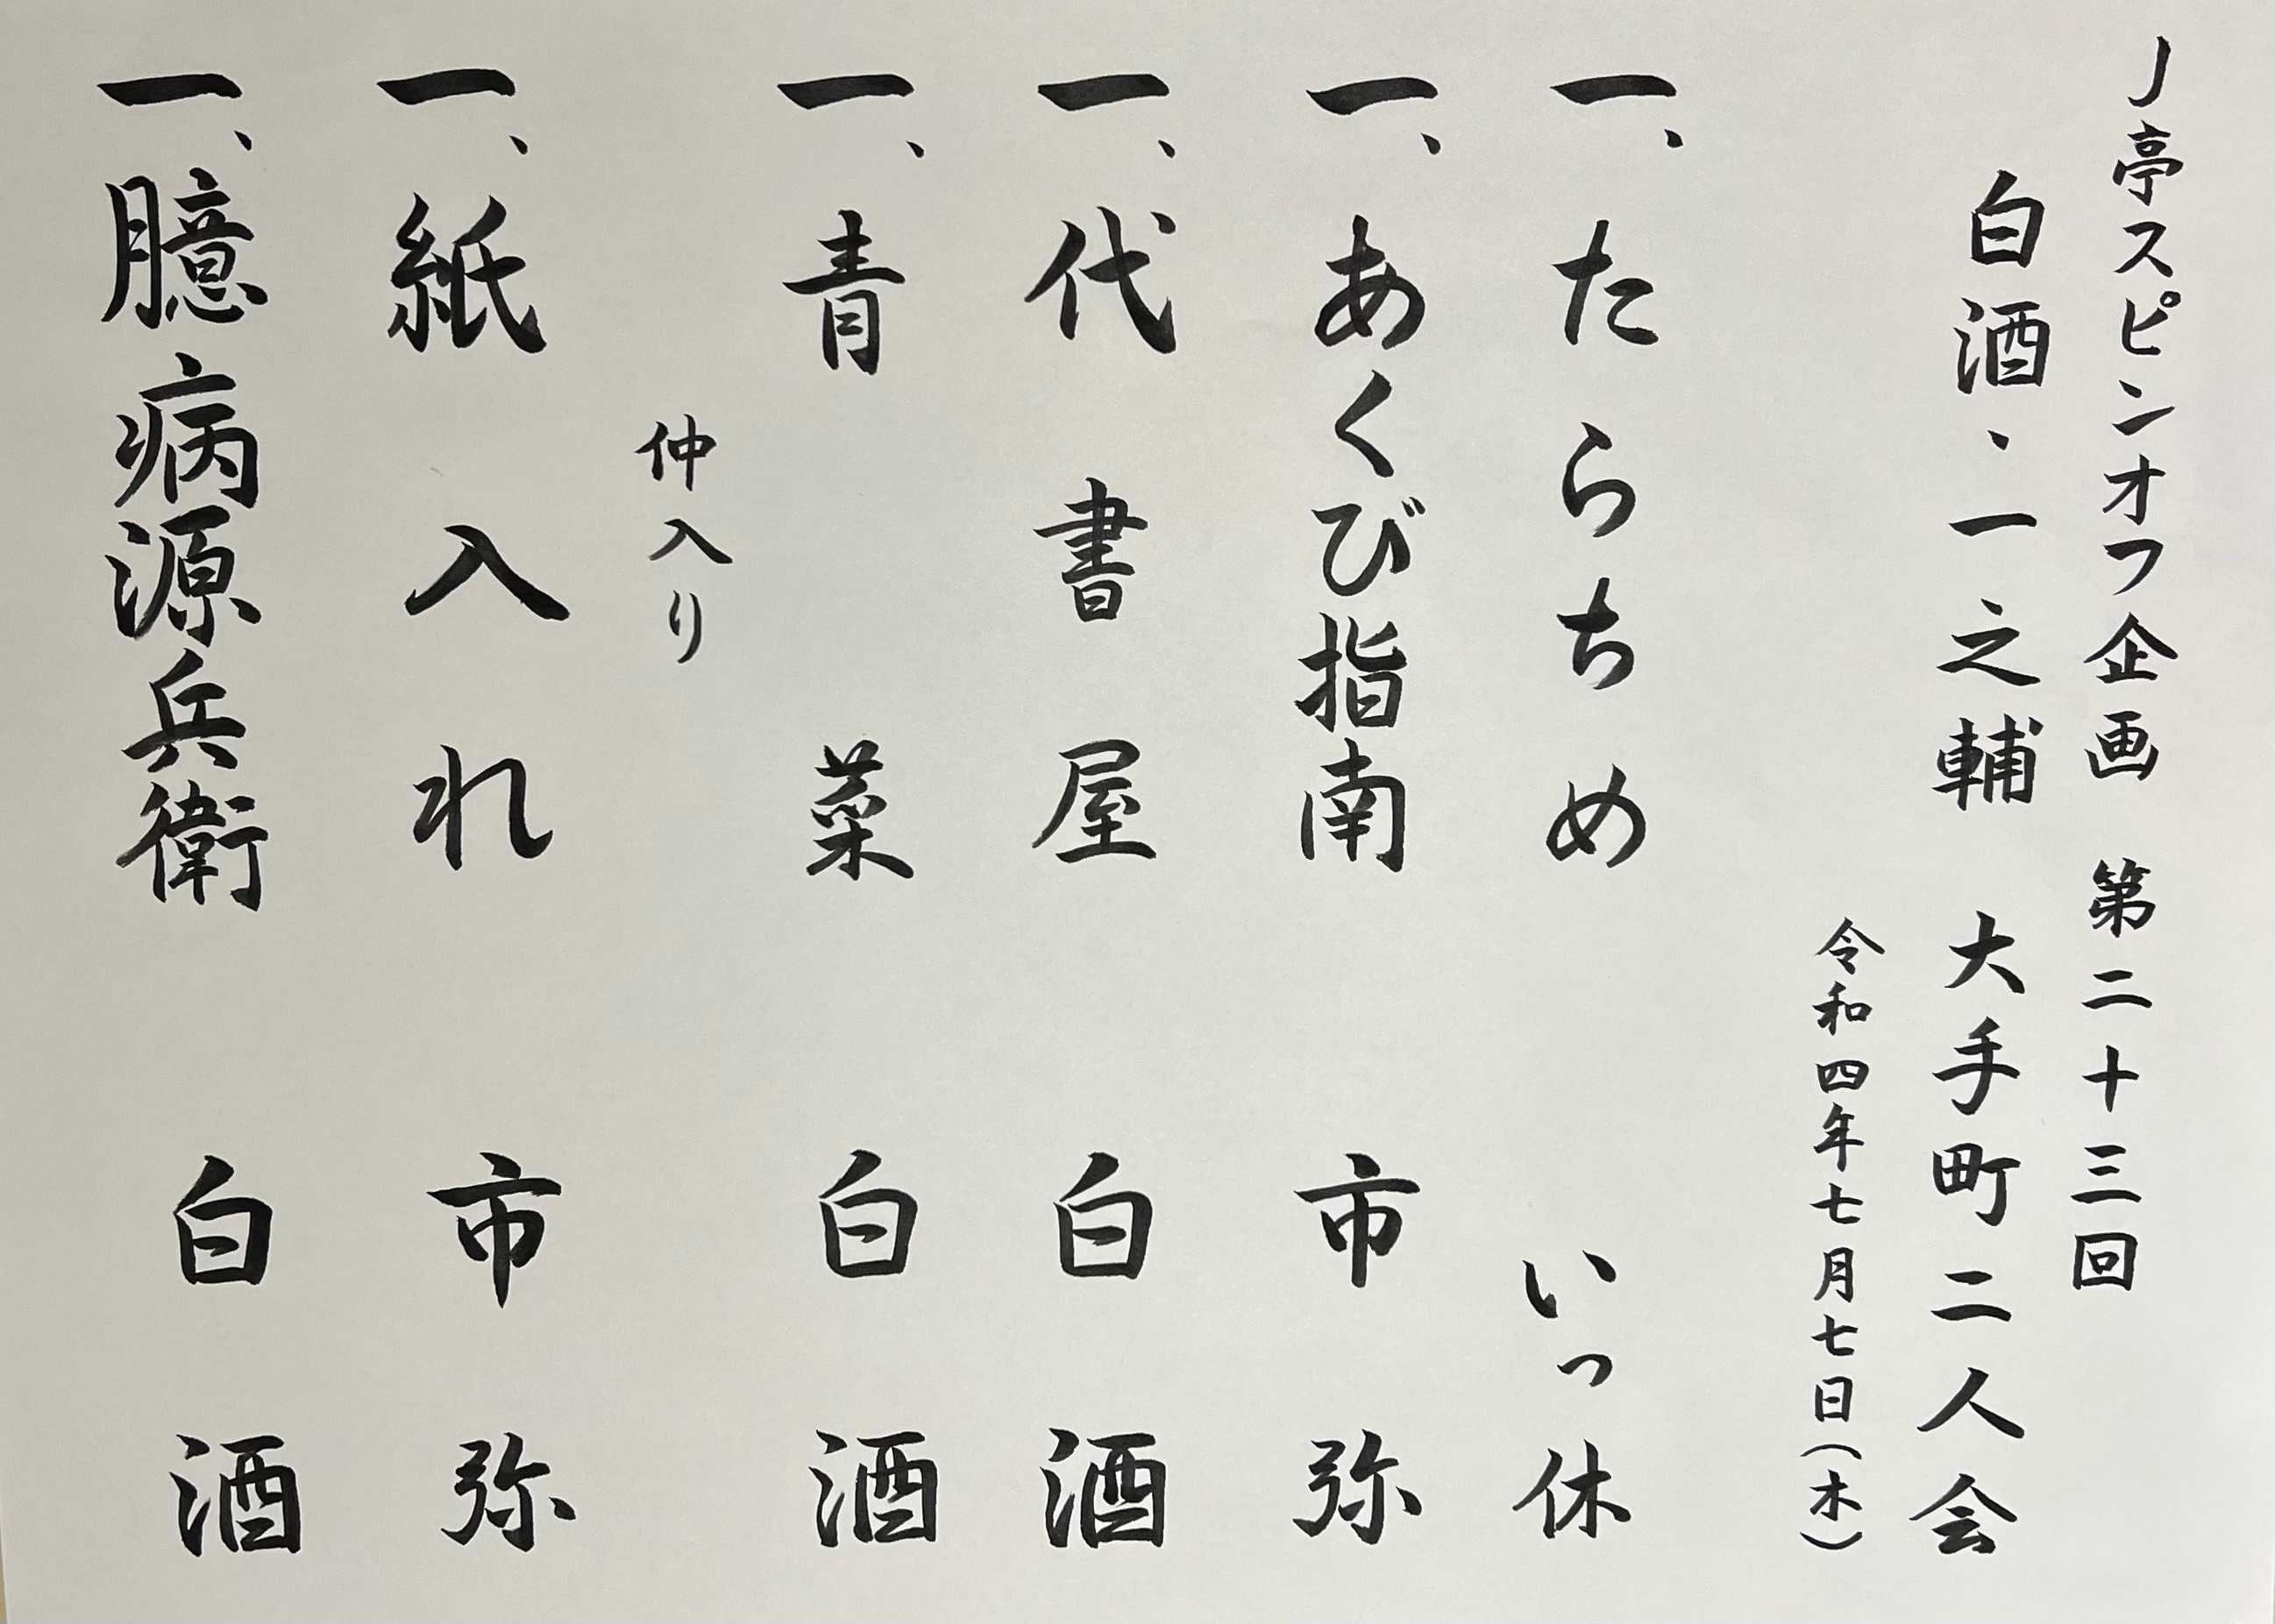 J亭スピンオフ企画 第二十三回
白酒・一之輔 大手町二人会
令和四年七月七日(木)
一、たらちめ いっ休
一、あくび指南 市弥
一、代書屋 白酒
一、青菜 白酒
仲入り
一、紙入れ 市弥
一、臆病源兵衛 白酒